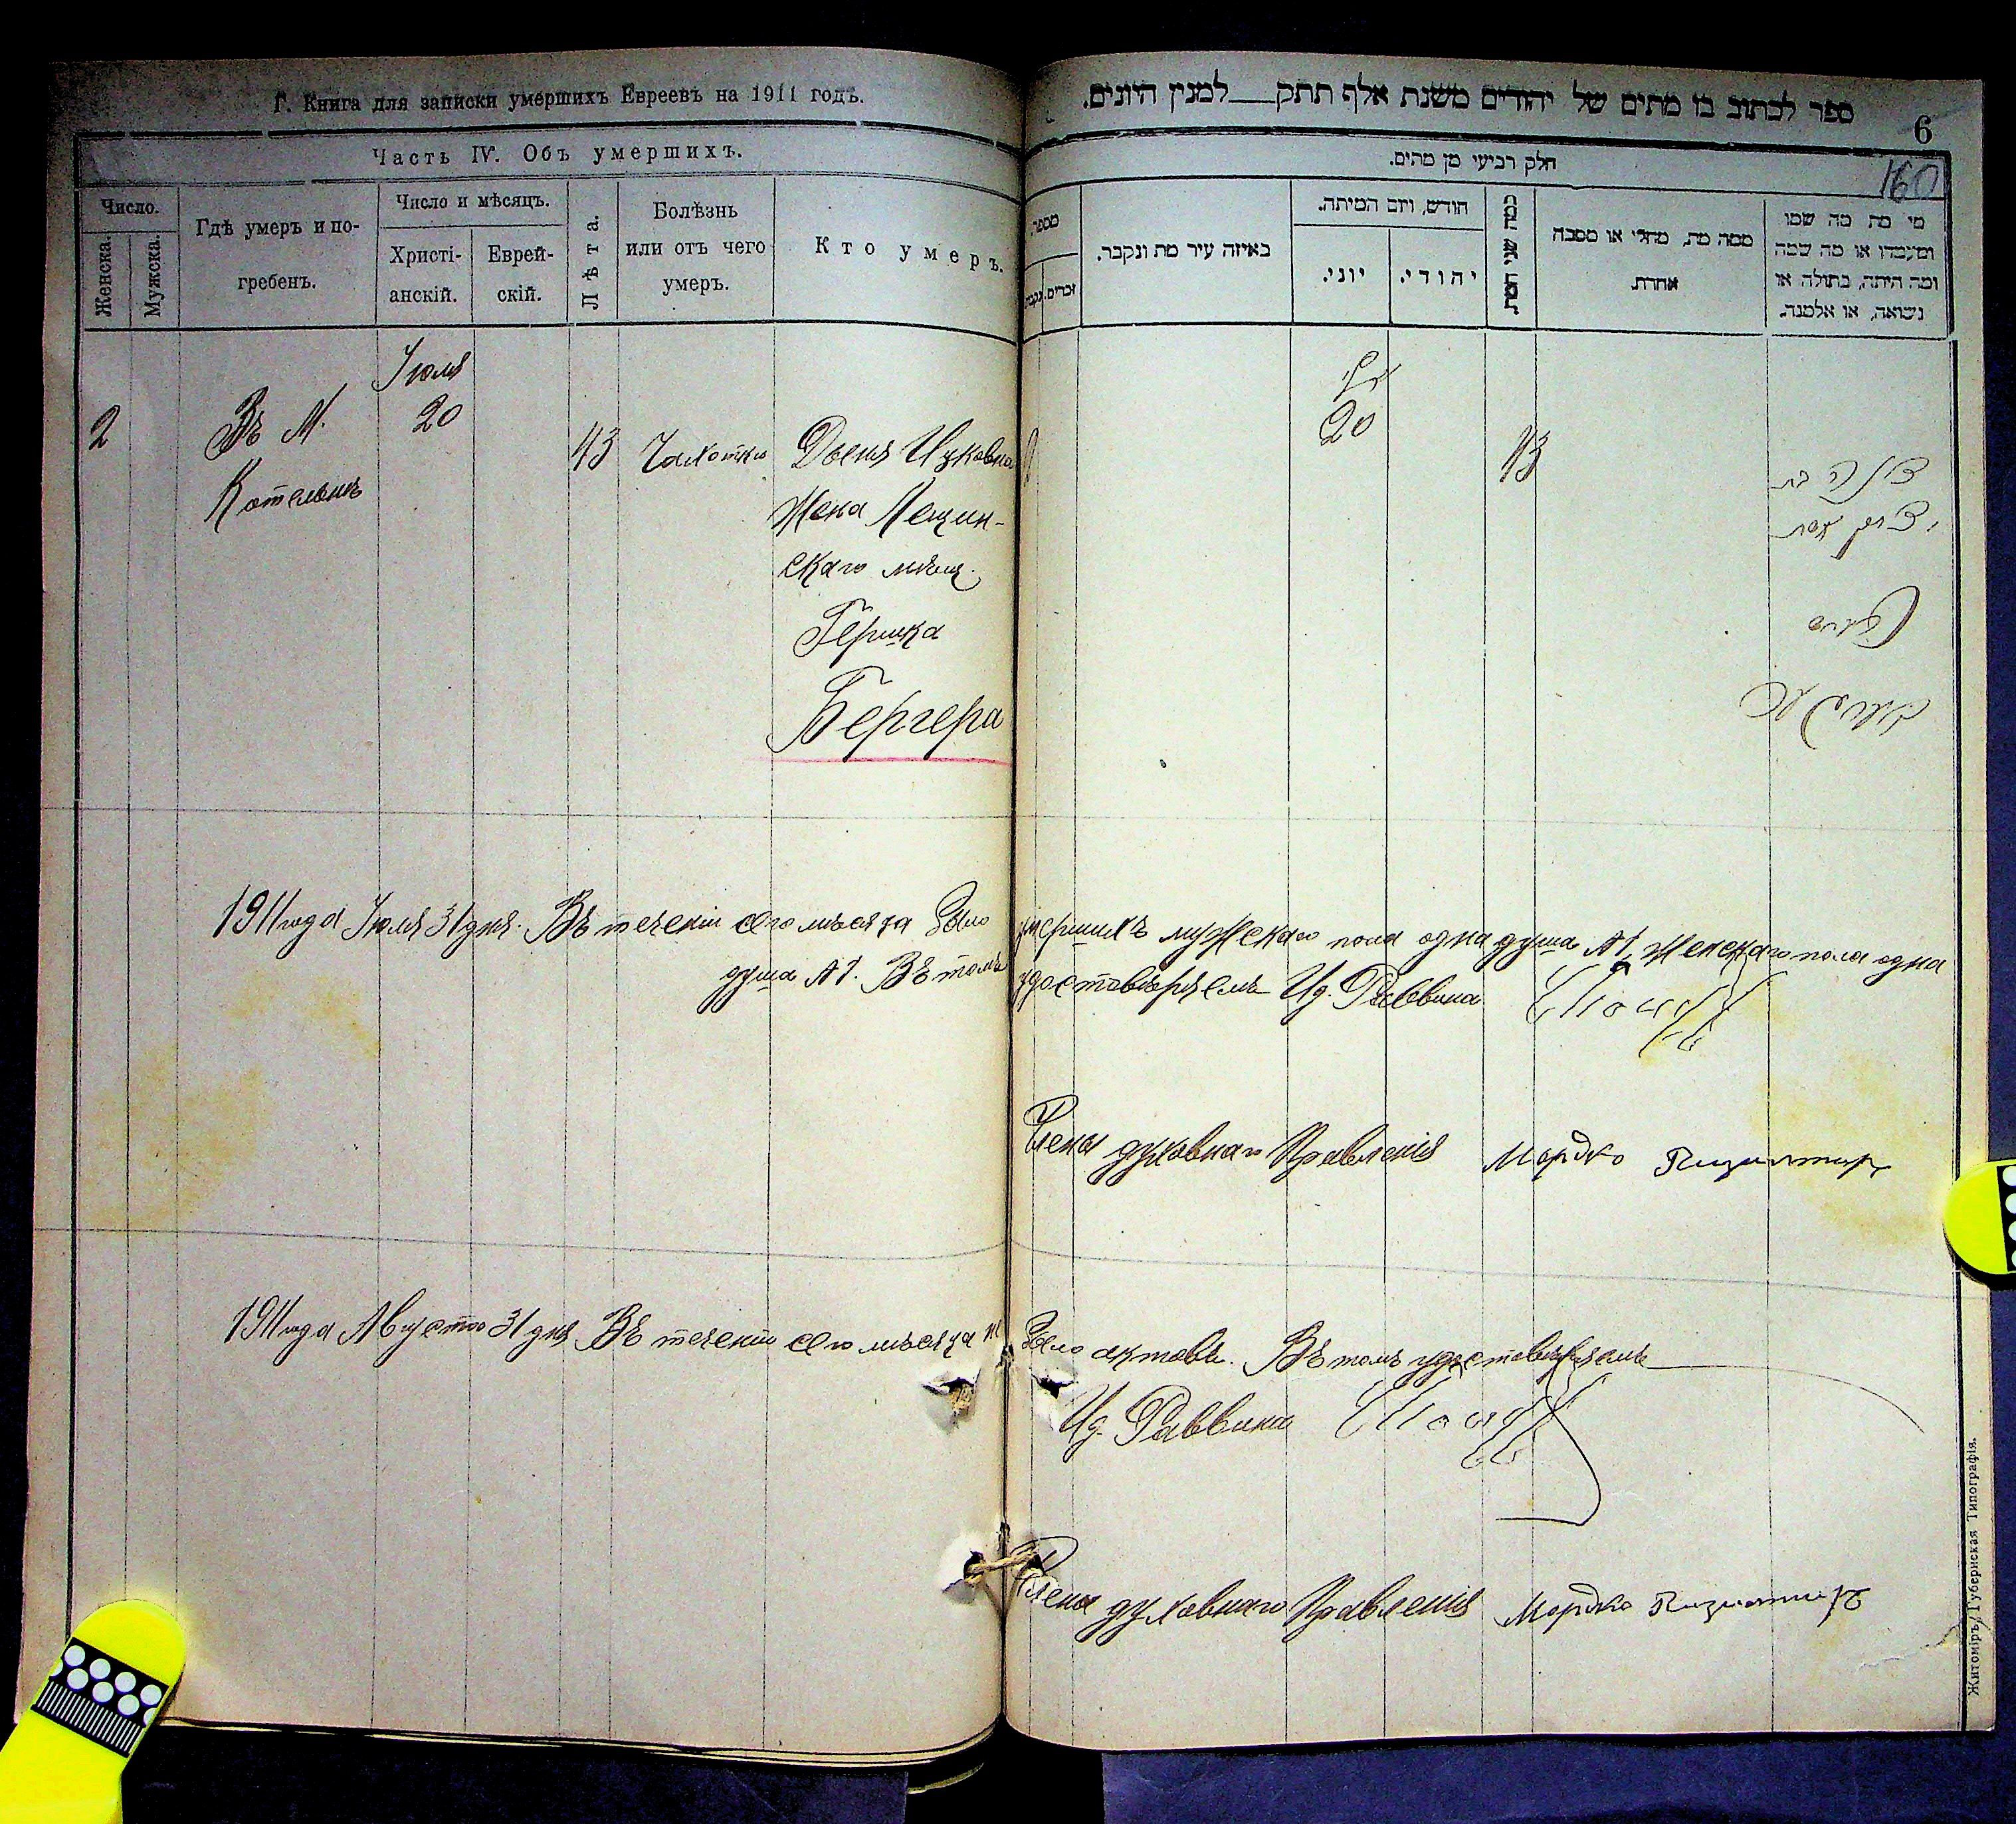 Г. Книга для записки умершихъ Евреевъ на 1911 годъ.
Часть IV. Объ умершихъ.
Число.
Женска.
Мужска.
Гдѣ умеръ и по-
гребенъ.
Число и мѣсяцъ.
Христі-
анскій.
Еврей-
скій.
Лѣта.
Болѣзнь
или отъ чего
умеръ.
Кто умеръ.
2
Въ М.
Котельнѣ
Іюля
20
43
Чахотка
Двеня Ицковна
Жена Лещин-
скаго мѣщ.
Гершка
Бергера
ספר לכתוב בו מתים של יהודים משנת אלף תתק___למנין היונים.
6
160
חלק רביעי מן מתים.
מספר.
זכרים.
נקבות
באיזה עיר מת ונקבר.
חודש, ויום המיתה.
יוני.
יהודי.
כמה שני המת
ממה מת, מחלי או מסבה
אחרת.
מי מת מה שמו
ומעמדו או מה שמה
ומה היתה, בתולה או
נשואה, או אלמנה.
יולי
20
43
1911 года Іюля 31 дня. Въ теченіи сего мѣсяца было умершихъ мужскаго пола одна душа №1, Женскаго пола одна
душа №1. Въ томъ удостовѣряемъ Ид. Раввина
Члены духовнаго Правленія Мордко
1911 года Августа 31 дня Въ теченіи сего мѣсяца не было актовъ. Въ томъ удостовѣряемъ
Ид. Раввина
Члены духовнаго Правленія Мордко
Житоміръ, Губернская Типографія.